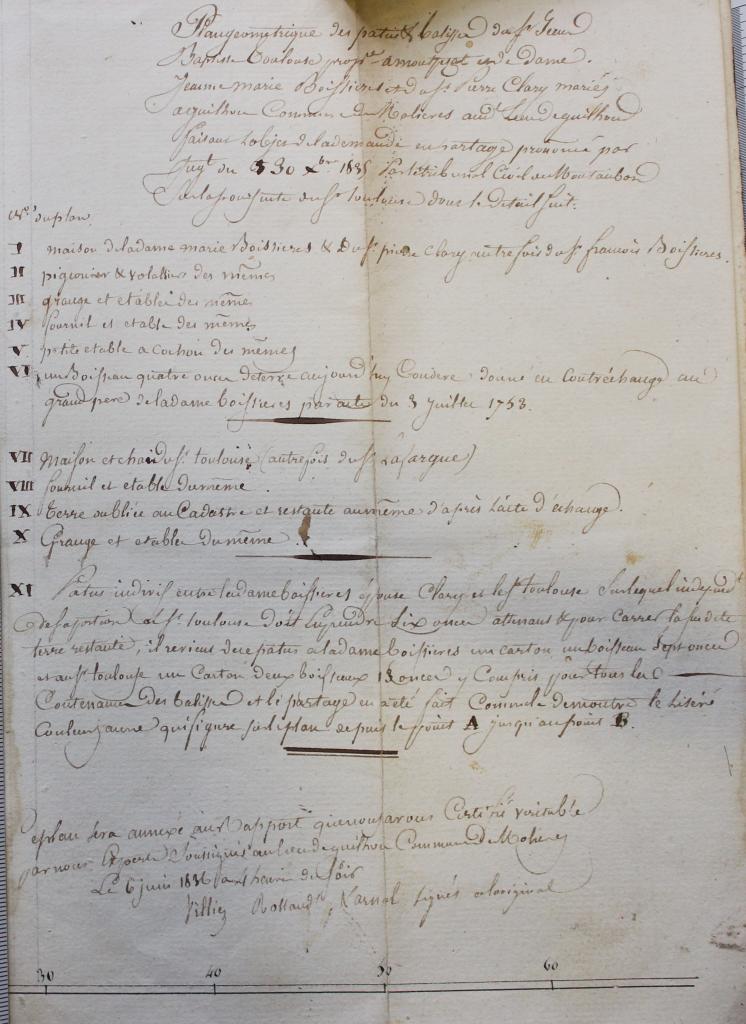 Plan geometrique des patus & balisses du Sr. Jean
Baptiste Toulouse propre. a montpezat et de dame
Jeanne Marie Boissieres et du Sr. Pierre Clary mariés
a quilhou Commune de Molieres aud. Lieu de quilhou
faisant L'objet de la demande en partage prononcé par
Jugt. du 30 Xbre 1835 Par le tribunal Civil de Montauban
Sur la poursuite du Sr. toulouse dont le detail suit.
Nos. du plan
I maison de la dame marie Boissieres & Du Sr. pierre Clary autrefois du Sr. francois Boissieres.
II pigeonier & volallier des mêmes
III grange et etable des mêmes
IV fournil et etable des mêmes
V petite etable a Cochon des mêmes
VI un Boisseau quatre onces de terre aujourd'huy Couderc donné en Contréchange au
grand pere de la dame boissieres par acte du 3 Juillet 1753.
VII Maison et chai du Sr. toulouse (autrefois du Sr. Lafargue)
VIII fournil et etable du même
IX terre oubliée au Cadastre et restante au même d'après L'acte d'échange.
X Grange et etable du même.
XI Patus indivis entre la dame boissieres épouse Clary et le Sr. toulouse Sur lequel independt.
de sa portion le Sr. toulouse doit en prendre Six onces attenant & pour carrer la fin de
terre restante, il revient de ce patus a la dame boissieres un carton un boisseau Sept onces
et au Sr. toulouse un Carton deux boisseaux onces y Compris pour tous la
Contenance des balisses et le partage en a été fait Comme le demontre le Liséré
Couleur jaune qui figure sur le plan depuis le point A jusqu'au point B.
plan sera annexé au Rapport que nous avons Certifié veritable
par nous Experts Soussignés au lieu de quilhou Commune de Molieres
Le 6 juin 1836 a heure de soir
Villiez Rossaud, Narnal signés a loriginal
30 40 50 60